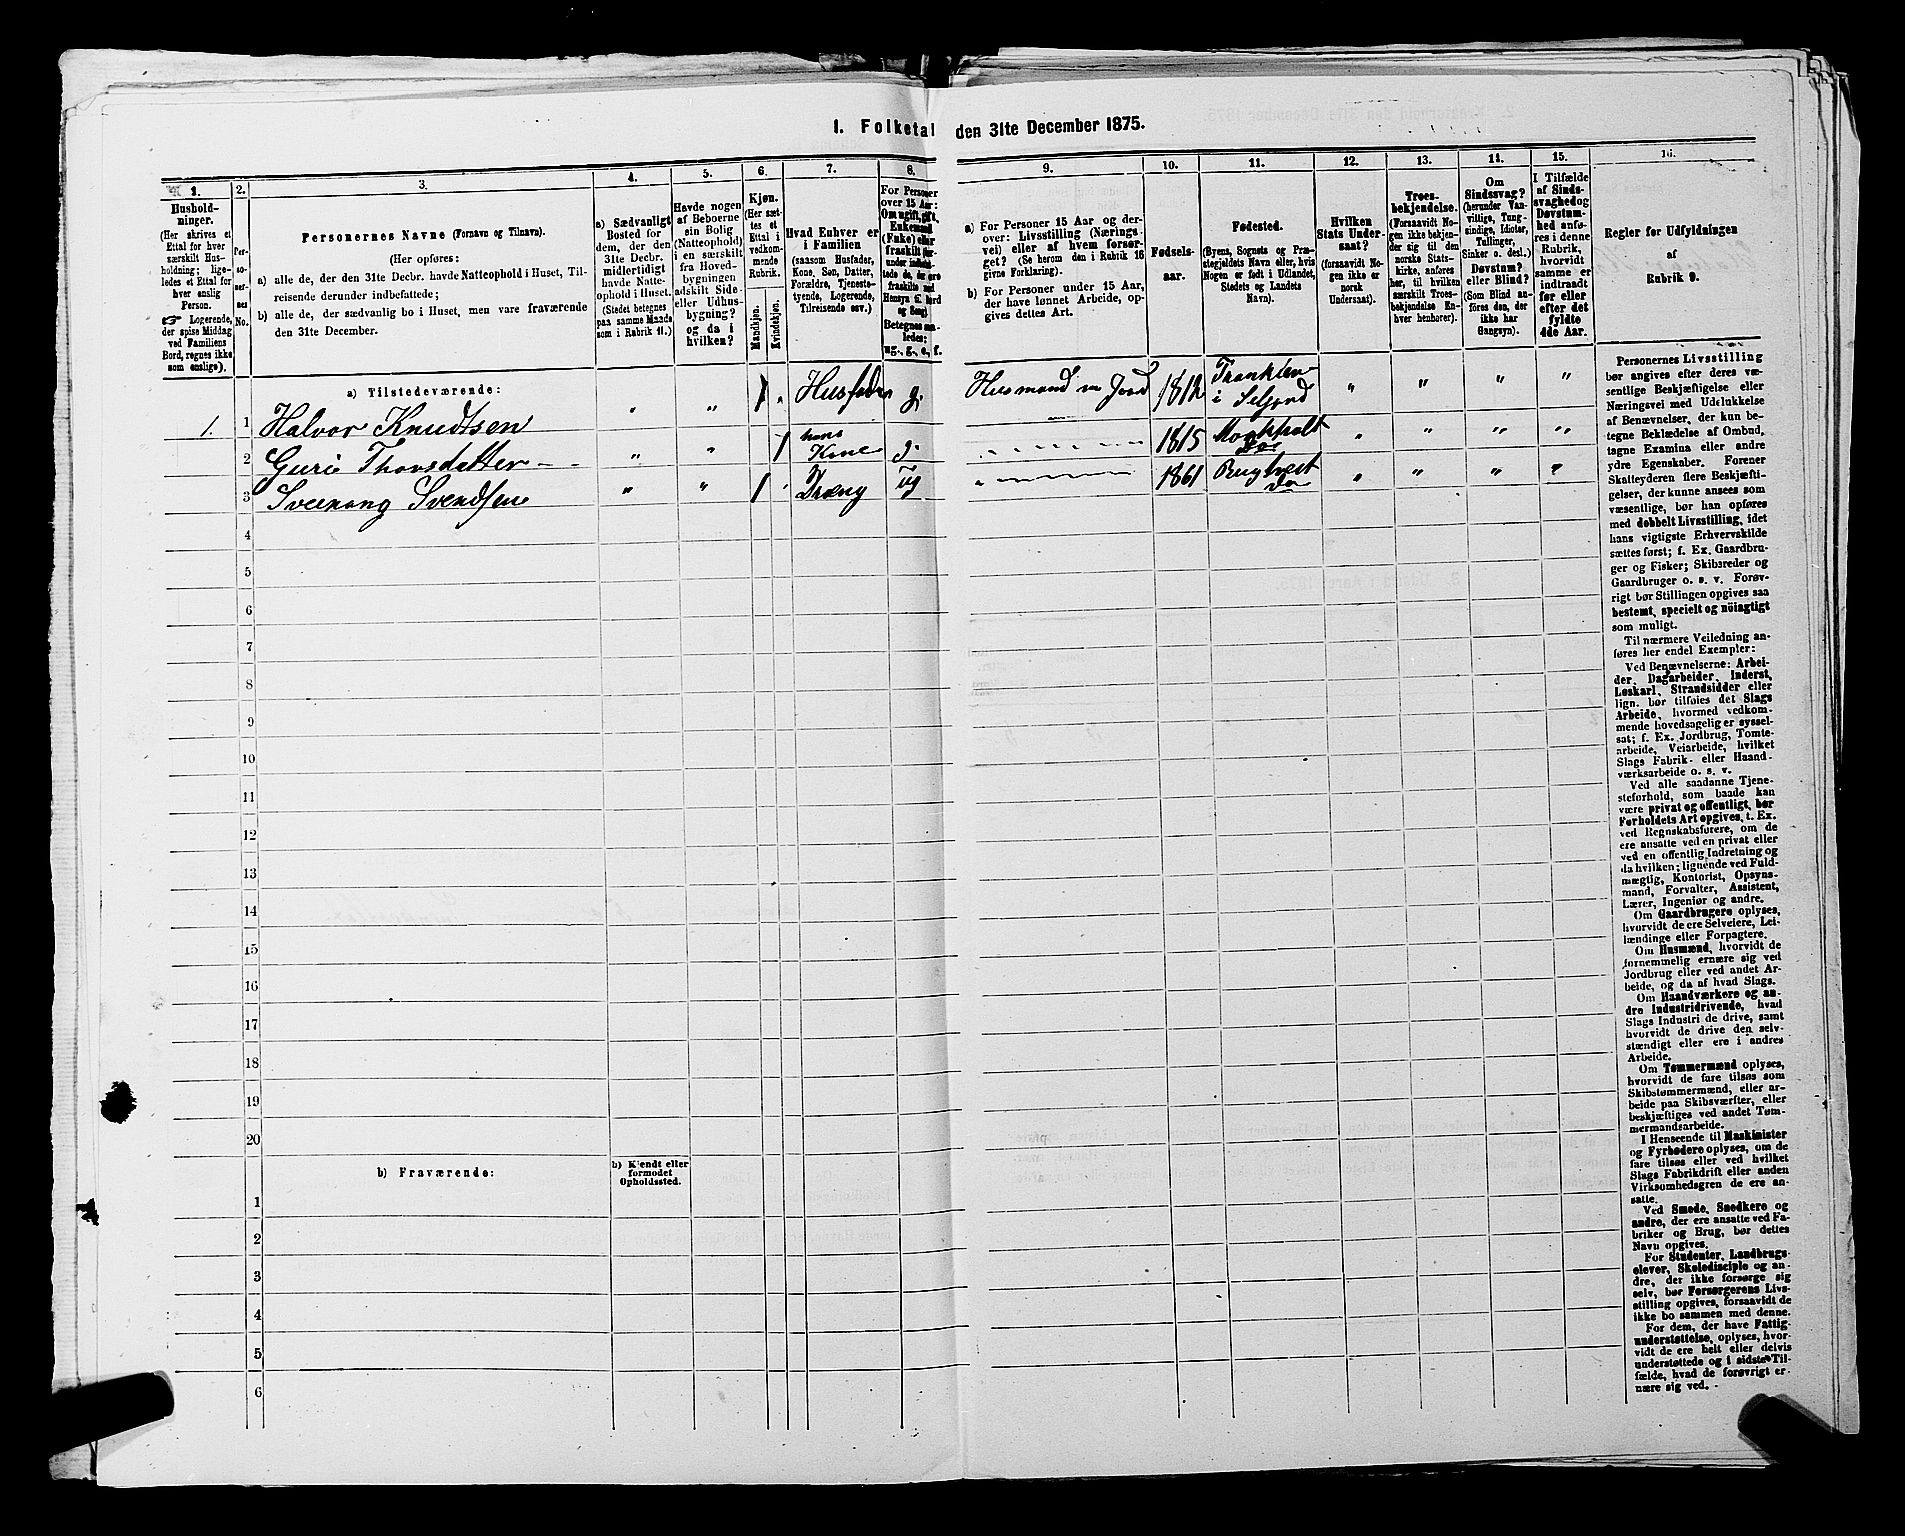 1. Folketal den 31te December 1875.
1.
2.
3.
4.
5.
6.
7.
8.
9.
10.
11.
12.
13.
14.
15.
16.
Hushold-
ninger.
(Her skrives et
Ettal for hver
særskilt Hus-
holdning; lige-
ledes et Ettal for
hver enslig
Person.
☞ Logerende,
der spise Middag
ved Familiens
Bord, regnes ikke
som enslige).
Per-
so-
ner-
nes
No.
Personernes Navne (Fornavn og Tilnavn).
(Her opføres:
a) alle de, der den 31te Decbr. havde Natteophold i Huset, Til-
reisende derunder indbefattede;
b) alle de, der sædvanlig bo i Huset, men vare fraværende
den 31te December.
a) Sædvanligt
Bosted for
dem, der den
31te Decbr.
midlertidigt
havde Natte-
ophold i Huset.
(Stedet betegnes
paa samme Maade
som i Rubrik 11.)
Havde nogen
af Beboerne
sin Bolig
(Natteophold)
i en særskilt
fra Hoved-
bygningen
adskilt Side-
eller Udhus-
bygning?
og da i
hvilken?
Kjøn.
(Her sæt-
tes et
Ettal i
vedkom-
mende
Rubrik.
Mandkjøn.
Kvindekjøn.
Hvad Enhver er
i Familien
(saasom Husfader,
Kone, Søn, Datter,
Forældre, Tjeneste-
tyende, Logerende,
Tilreisende osv.)
For Personer
over 15 Aar:
Om ugift, gift,
Enkemand
(Enke) eller
fraskilt
Betegnes saa-
ledes:
ug., g., e., f.
a) For Personer 15 Aar og der-
over: Livsstilling (Nærings-
vei) eller af hvem forsør-
get? (Se herom den i Rubrik 16
givne Forklaring).
b) For Personer under 15 Aar,
der have lønnet Arbeide, op-
gives dettes Art.
Fødsels-
aar.
Fødested.
(Byens, Sognets og Præ-
stegjeldets Navn eller, hvis
Nogen er født i Udlandet,
Stedets og Landets
Navn).
Hvilken
Stats Under-
saat?
(forsaavidt No-
gen ikke er
norsk
Undersaat).
Troes-
bekjendelse.
(Forsaavidt No-
gen ikke bekjen-
der sig til den
norske Stats-
kirke, anføres
her, til hvilken
særskilt Troes-
bekjendelse En-
hver henhører).
Om
Sindssvag?
(herunder Van-
vittige, Tung-
sindige, Idioter,
Tullinger,
Sinker o. desl.).
Døvstum?
eller Blind?
(Som Blind an-
føres den, der
ikke har
Gangsyn).
I Tilfælde
af Sinds-
svaghed og
Døvstum-
hed anfø-
res i denne
Rubrik,
hvorvidt
samme er
indtraadt
før eller
efter det
fyldte
4de Aar.
Regler for Udfyldningen
af
Rubrik 9.
a) Tilstedeværende:
1. 1 Halvor Knudtsen " " 1 " Husfader g. Husmand m Jord 1812 i Seljord " " " "
2 Guri Thorsdatter " " 1 hans Kone g. 1815 do " " " "
3 Sveinong Svendsen " " 1 " Dræng ug 1861 do " " " "
4
5
6
7
8
9
10
11
12
13
14
15
16
17
18
19
20
b) Fraværende:
b) Kjendt eller
formodet
Opholdssted.
1
2
3
4
5
6
Personernes Livsstilling
bør angives efter deres væ-
sentlige Beskjæftigelse eller
Næringsvei med Udelukkelse
af Benævnelser, der kun be-
tegne Beklædelse af Ombud,
tagne Examina eller andre
ydre Egenskaber. Forener
Skatteyderen flere Beskjæfti-
gelser, der kunne ansees som
væsentlige, bør han opføres
med dobbelt Livsstilling, idet
hans vigtigste Erhvervskilde
sættes først; f. Ex. Gaardbru-
ger og Fisker; Skibsreder og
Gaardbruger o. s. v. Forøv-
rigt bør Stillingen opgives saa
bestemt, specielt og nöiagtigt
som muligt.
Til nærmere Veiledning an-
føres her endel Exempler:
Ved Benævnelserne: Arbei-
der, Dagarbeider, Inderst,
Løskarl, Strandsidder eller
lign. bør tilføies det Slags
Arbeide, hvormed vedkom-
mende hovedsagelig er syssel-
sat; f. Ex. Jordbrug, Tomte-
arbeide, Veiarbeide, hvilket
Slags Fabrik- eller Haand-
værksarbeide o. s. v.
Ved alle saadanne Tjene-
steforhold, som baade kan
være privat og offentligt, bør
Forholdets Art opgives, t. Ex.
ved Regnskabsførere, om de
ere ansatte ved en privat eller
ved en offentlig Indretning og
da hvilken; lignende ved Fuld-
mægtig, Kontorist, Opsyns-
mand, Forvalter, Assistent,
Lærer, Ingeniør og andre.
Om Gaardbrugere oplyses,
hvorvidt de ere Selveiere, Lei-
lændinge eller Forpagtere.
Om Husmænd, hvorvidt de
fornemmelig ernære sig ved
Jordbrug eller ved andet Ar-
beide, og da af hvad Slags.
Om Haandværkere og an-
dre Industridrivende, hvad
Slags Industri de drive, samt
hvorvidt de drive den selv-
stændigt eller ere i andres
Arbeide.
Om Tømmermænd oplyses,
hvorvidt de fare tilsøs som
Skibstømmermænd, eller ar-
beide paa Skibsværfter, eller
beskjæftiges ved andet Tøm-
mermandsarbeide.
I Henseende til Maskinister
og Fyrbødere oplyses, om de
fare tilsøs eller ved hvilket
Slags Fabrikdrift eller anden
Virksomhedsgren de ere an-
satte.
Ved Smede, Snedkere og
andre, der ere ansatte ved Fa-
briker og Brug, bør dettes
Navn opgives.
For Studenter, Landbrugs-
elever, Skoledisciple og an-
dre, der ikke forsørge sig
selv, bør Forsørgerens Livs-
stilling opgives, forsaavidt de
ikke bo sammen med denne.
For dem, der have Fattig-
understøttelse, oplyses, hvor-
vidt de ere helt eller delvis
understøttede og i sidste Til-
fælde, hvad de forøvrigt er-
nære sig ved.